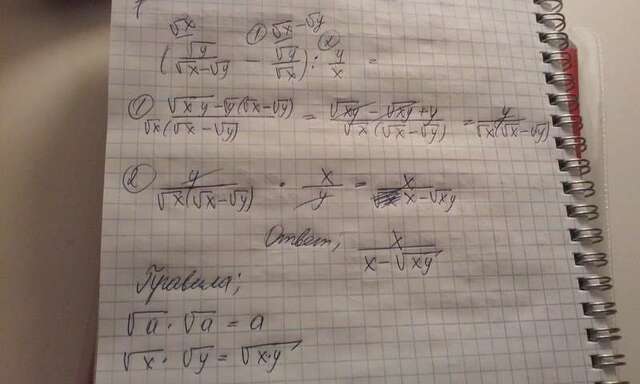 (√y/(√x-√y) - √y/√x) : y/x =
① (√xy - √y(√x-√y))/(√x(√x-√y)) = (√xy - √xy + y)/(√x(√x-√y)) = y/(√x(√x-√y))
② y/(√x(√x-√y)) · x/y = x/(x-√xy)
Ответ, x/(x-√xy)
Правила;
√a · √a = a
√x · √y = √x·y